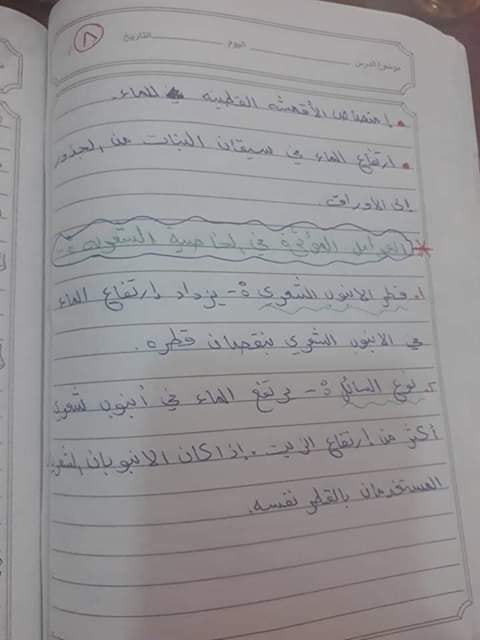 موضوع الدرس اليوم التاريخ ٨
• امتصاص الأقمشه القطنيه للماء.
• ارتفاع الماء في سيقان النبات من الجذور
إلى الأوراق.
* العوامل المؤثرة في الخاصية الشعرية :-
١. قطر الانبوب الشعري :- يزداد ارتفاع الماء
في الانبوب الشعري بنقصان قطره.
٢. نوع السائل :- يرتفع الماء في أنبوب شعري
أكثر من ارتفاع الزيت. إذا كان الانبوبان الشعريان
المستخدمان بالقطر نفسه.